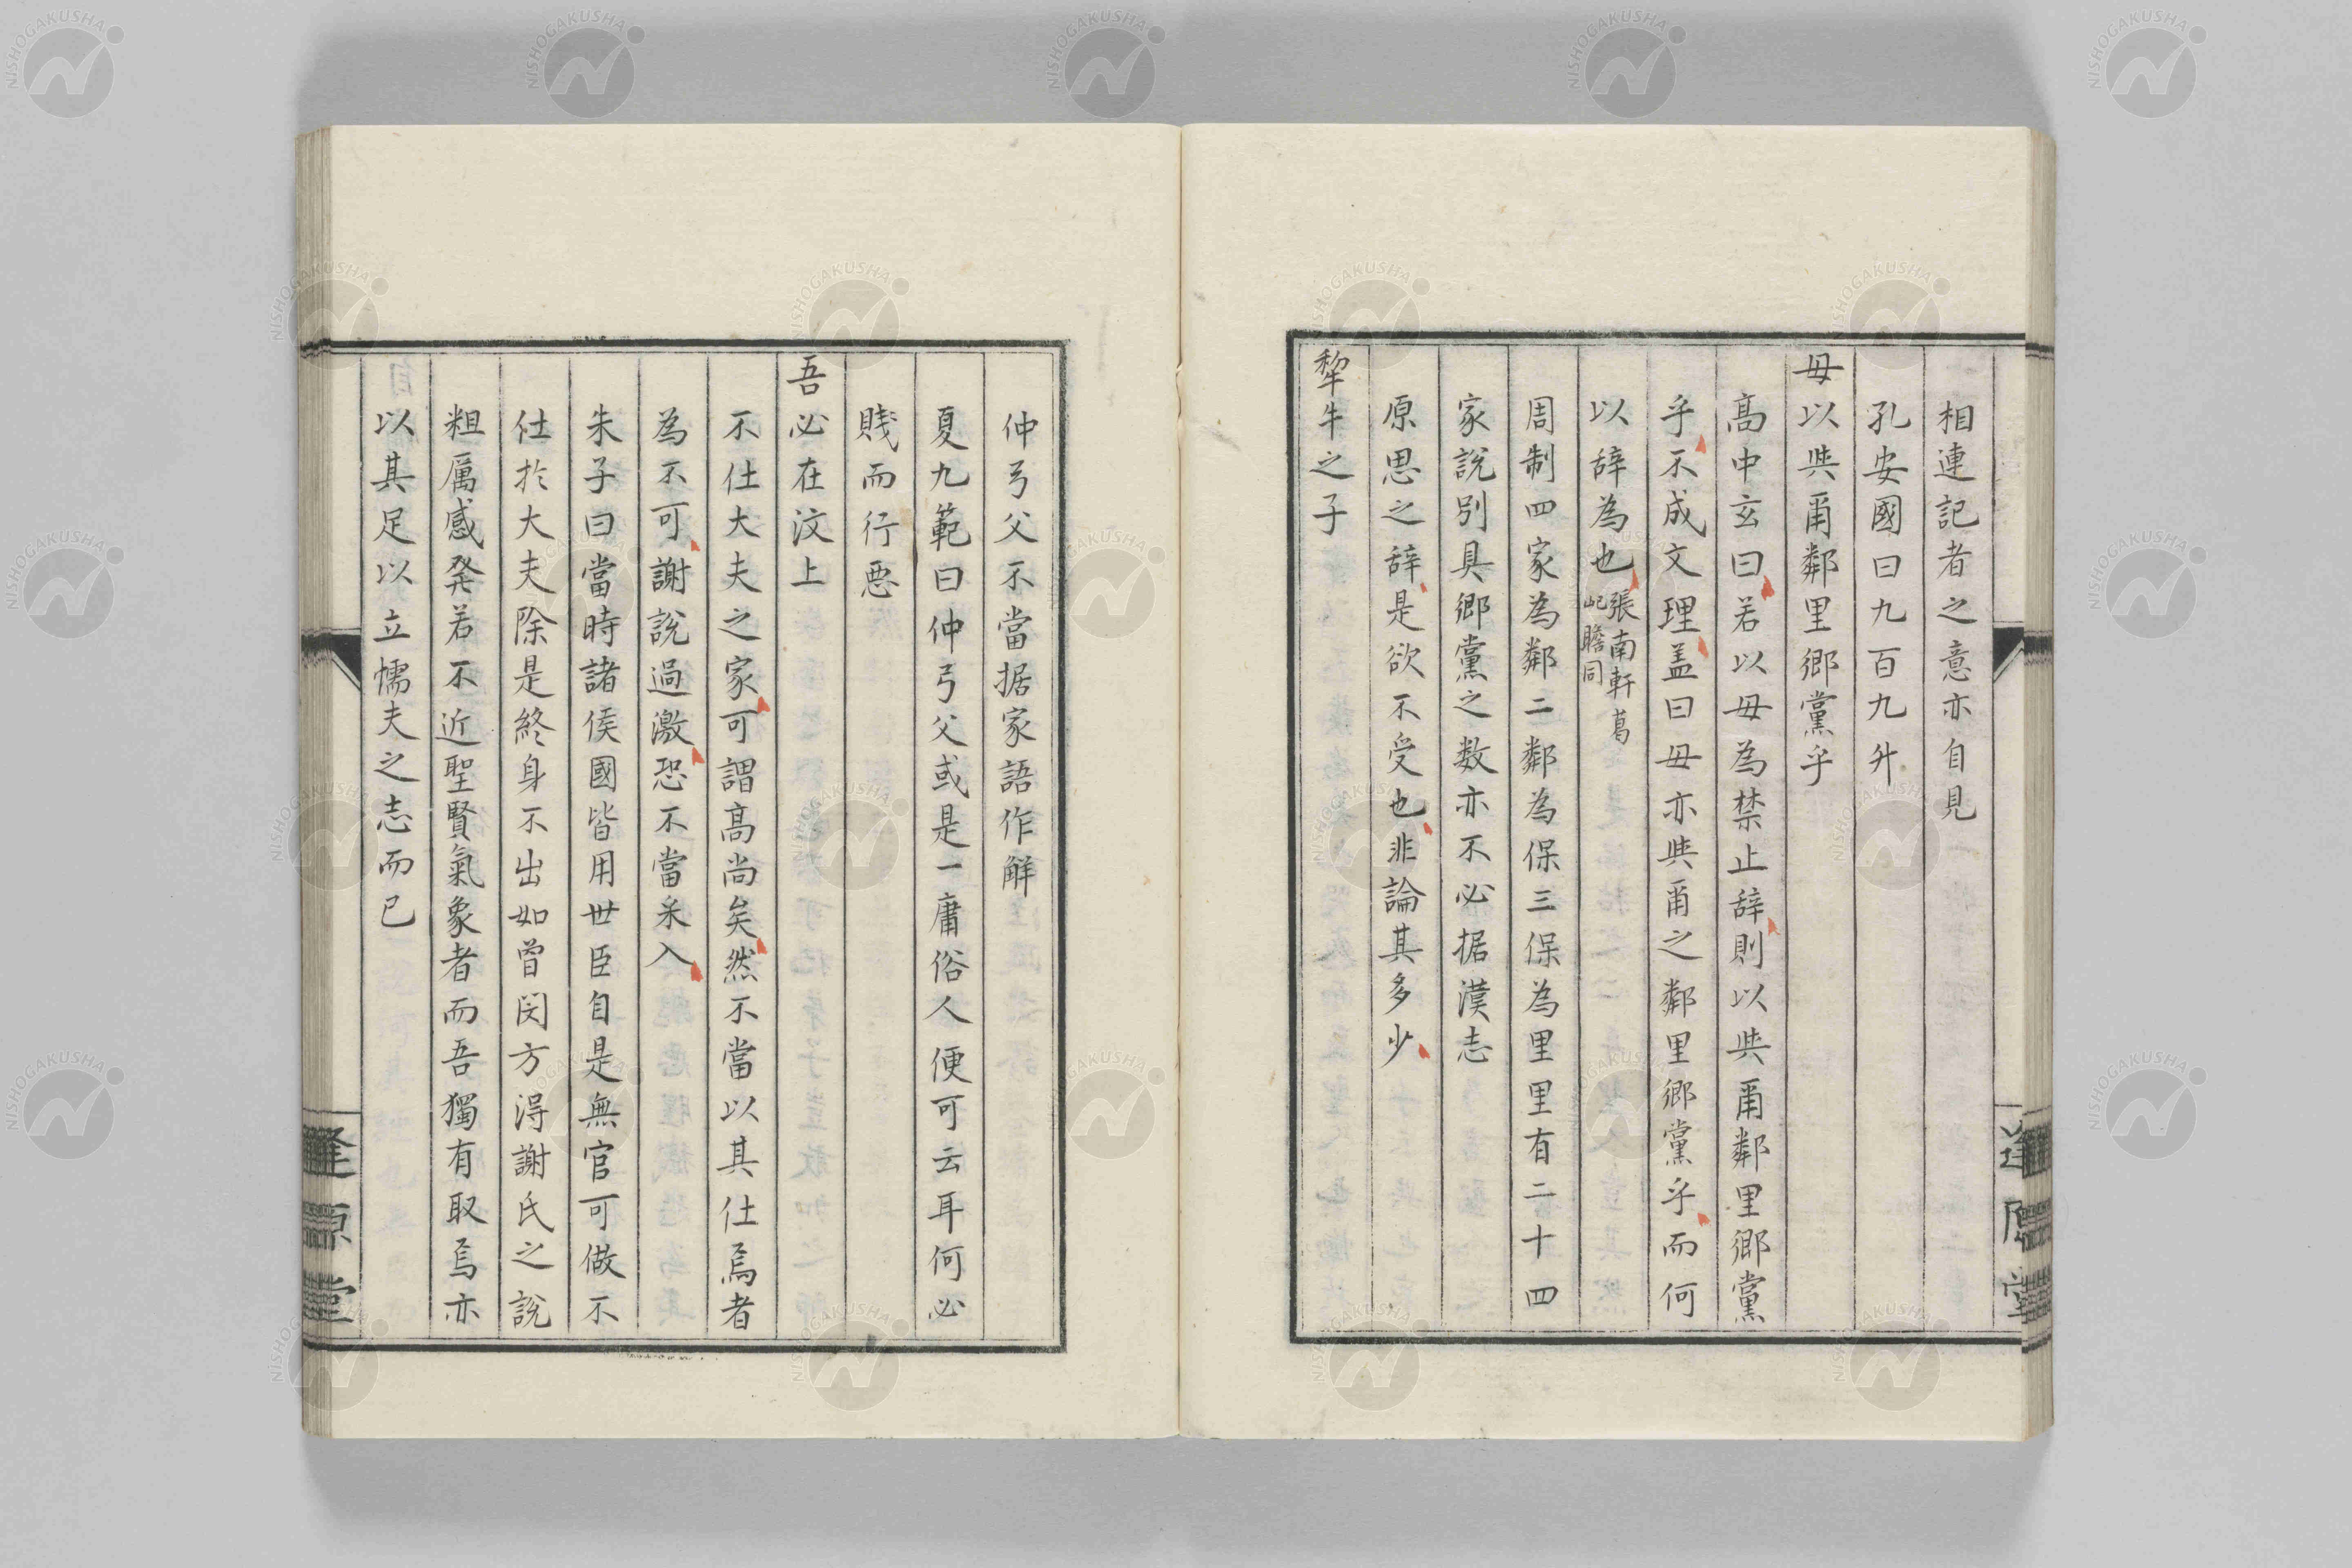 相連記者之意亦自見
孔安國曰九百九升
毋以與爾鄰里鄉黨乎
髙中玄曰若以毋為禁止辞則以與爾鄰里鄉黨
乎不成文理盖曰毋亦與爾之鄰里鄉黨乎而何
以辞為也張南軒葛
屺瞻同
周制四家為鄰二鄰為保三保為里里有二十四
家說別具鄉黨之数亦不必据漢志
原思之辞是欲不受也非論其多少
犂牛之子
逢原堂
仲弓父不當据家語作解
夏九範曰仲弓父或是一庸俗人便可云耳何必
賤而行惡
吾必在汶上
不仕大夫之家可謂髙尚矣然不當以其仕焉者
為不可謝說過激恐不當采入
朱子曰當時諸侯國皆用世臣自是無官可做不
仕於大夫除是終身不出如曾閔方得謝氏之說
粗厲感発若不近聖賢氣象者而吾獨有取焉亦
以其足以立懦夫之志而已
逢原堂
NISHOGAKUSHA